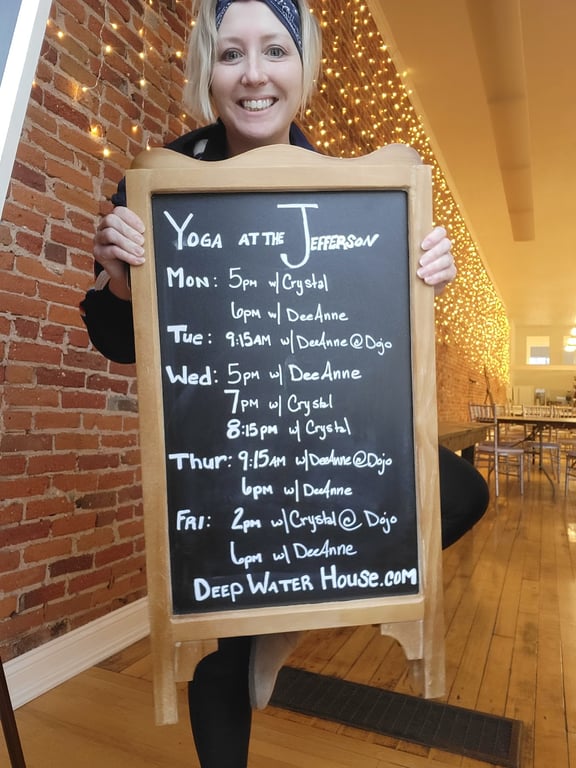 Yoga at the Jefferson
Mon: 5pm w/ Crystal
6pm w/ DeeAnne
Tue: 9:15am w/ DeeAnne @ Dojo
Wed: 5pm w/ DeeAnne
7pm w/ Crystal
8:15pm w/ Crystal
Thur: 9:15am w/ DeeAnne @ Dojo
6pm w/ DeeAnne
Fri: 2pm w/ Crystal @ Dojo
6pm w/ DeeAnne
Deep Water House.com